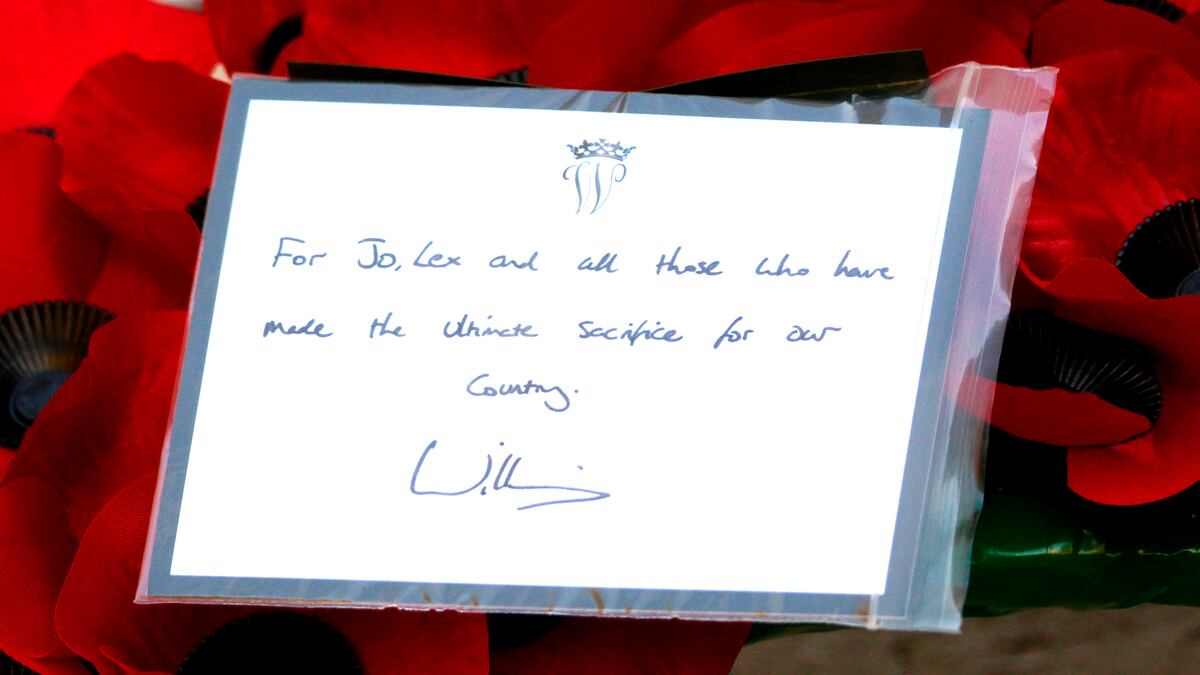 W
For Jo, Lex and all those who have
made the ultimate sacrifice for our
Country.
William